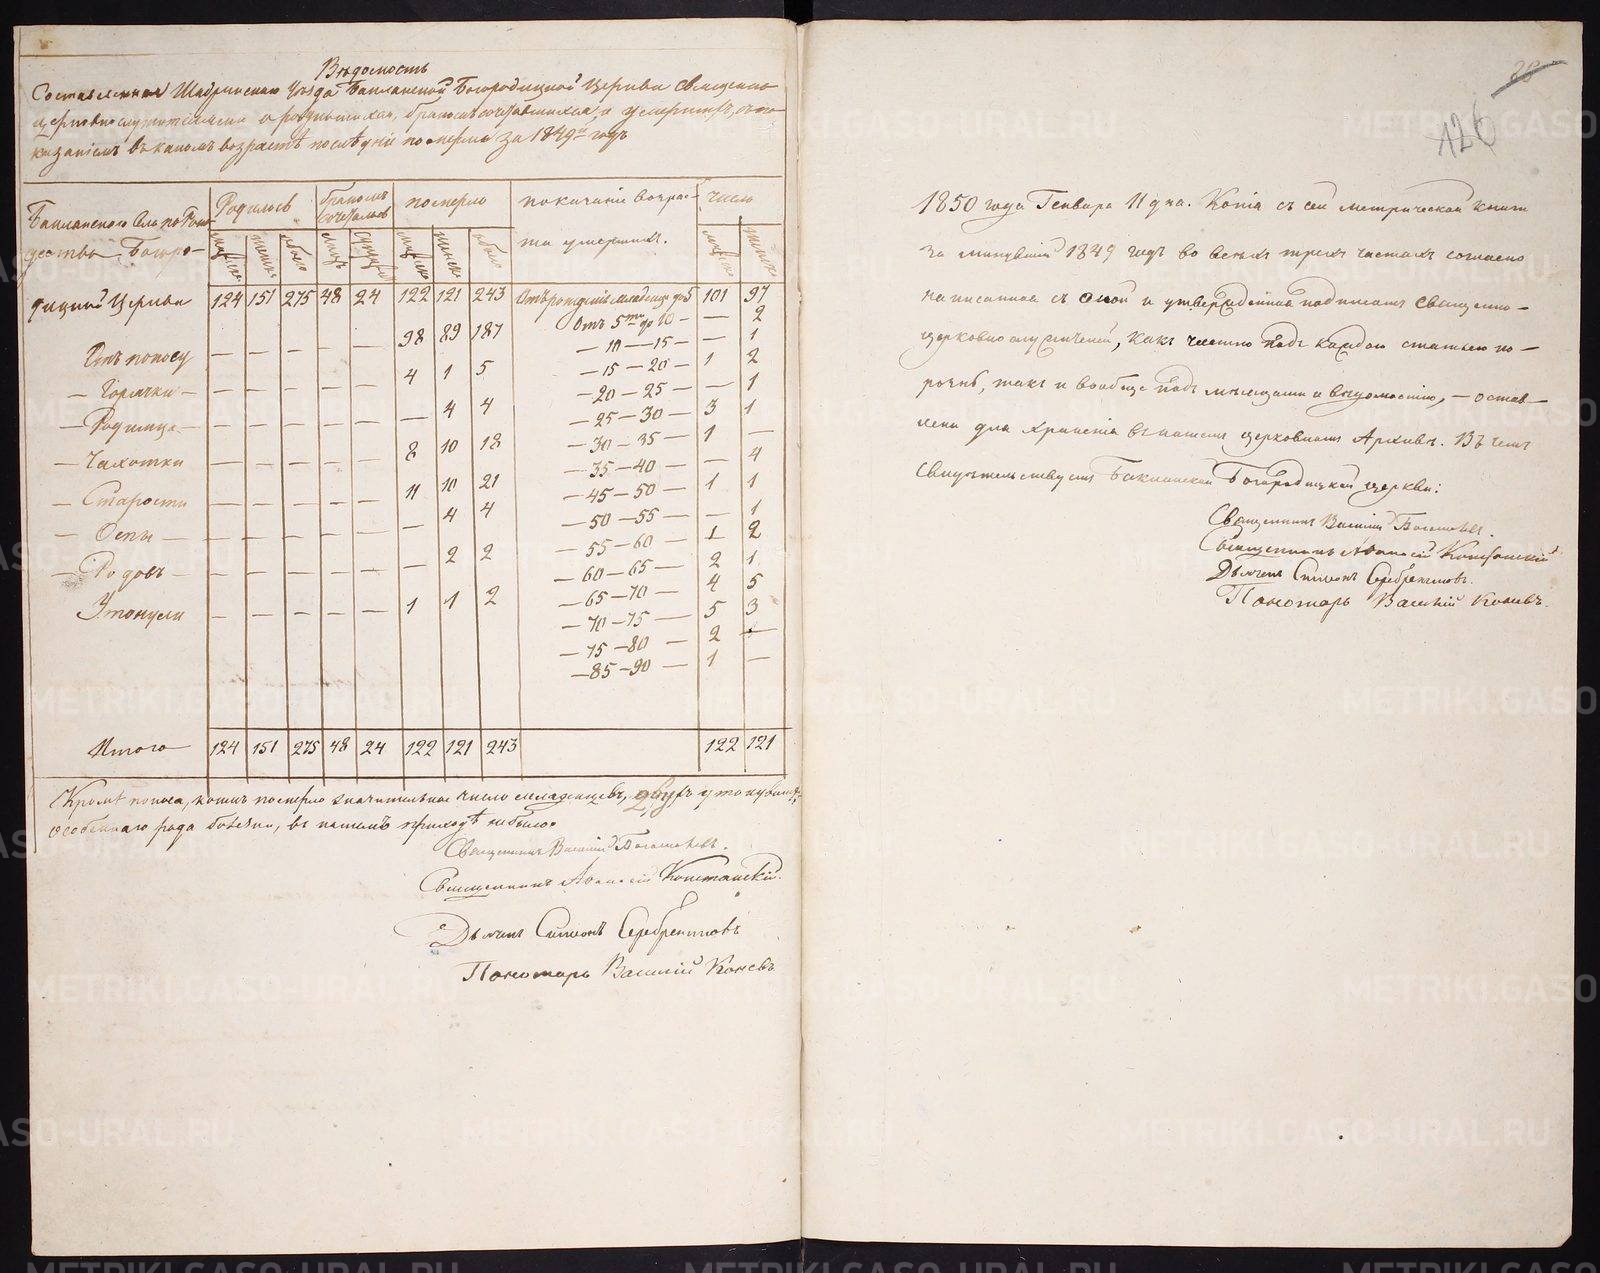 Вѣдомость
Составленная Шадринскаго Уѣзда Бакланской Богородицкой Церкви священно
церковнослужителями о родившихся, бракомъ сочетавшихся, и умершихъ, съ по-
казаніемъ въ какомъ возрастѣ послѣдніе померли за 1849й годъ
Бакланскаго Села по Рож-
дества Богоро-
дицкой Церкви
Родилось
бракомъ сочетались
померло
показаніе возрас-
та умершихъ.
число
124 151 275 48 24 122 121 243 Отъ рожденія младенца до 5 101 97
Отъ 5ти до 10 — — 2
Отъ поносу — — — — — 98 89 187
— 10 — 15 — — 1
— Горячки — — — — — — 4 1 5
— 15 — 20 — 1 2
— 20 — 25 — — 1
— Родимца — — — — — — — 4 4
— 25 — 30 — 3 1
— Чахотки — — — — — 8 10 18
— 30 — 35 — 1 —
— 35 — 40 — — 4
— Старости — — — — — 11 10 21
— 45 — 50 — 1 1
— Оспы — — — — — — — 4 4
— 50 — 55 — — 1
— 55 — 60 — 1 2
— Родовъ — — — — — — 2 2
— 60 — 65 — 2 1
— 65 — 70 — 4 5
Утонули — — — — — 1 1 2
— 70 — 75 — 5 3
— 75 — 80 — 2 —
— 85 — 90 — 1 —
Итого 124 151 275 48 24 122 121 243 122 121
Кромѣ поноса, коимъ померло значительное число младенцевъ, двухъ утонувшихъ,
особеннаго рода болѣзни, въ нашемъ приходѣ не было.
Священникъ Василій
Священникъ Аѳанасій
Дьячекъ Симеонъ Серебренниковъ
Пономарь Василій Коневъ
126
1850 года Генваря 11 дня. Копія съ сей метрической книги
за минувшій 1849 годъ во всѣхъ трехъ частяхъ согласно
написанная съ оной и утвержденная подписомъ священно-
церковнослужителей, какъ частно подъ каждою статьею по-
рознь, такъ и вообще подъ мѣсяцами и вѣдомостію, — остав-
лена для храненія въ нашемъ церковномъ Архивѣ. Въ чемъ
свидѣтельствуемъ Бакланской Богородицкой церкви:
Священникъ Василій
Священникъ Аѳанасій
Дьячекъ Симеонъ Серебренниковъ.
Пономарь Василій Коневъ.
METRIKI.GASO-URAL.RU